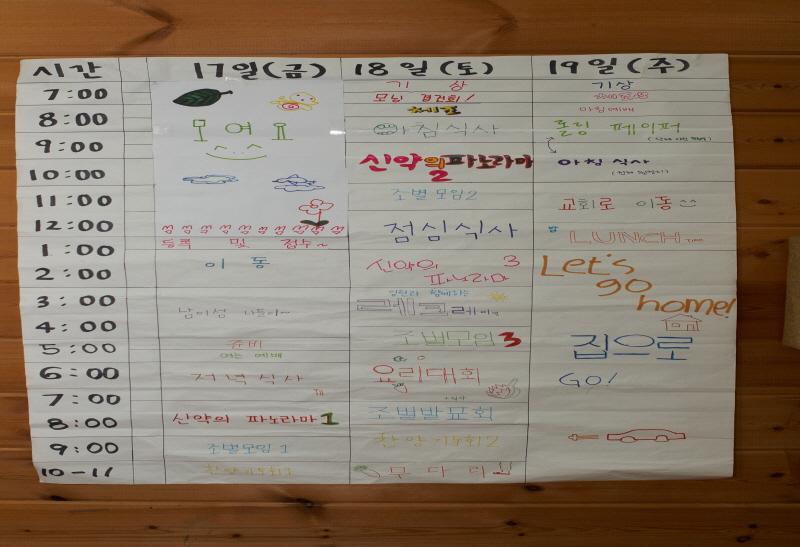 시간 17일(금) 18일(토) 19일(주)
7:00 기상 기상
모닝
8:00 세면 아침예배
아침식사 롤링 페이퍼
9:00
신약의 파노라마 2 아침식사
10:00
조별모임2
11:00 교회로 이동
12:00 점심식사
등록 및 접수~ LUNCH Time
1:00
이동 신약의 파노라마 3 Let's go home!
2:00
3:00 함께하는
남이섬 나들이~ 레크레이션
4:00
조별모임 3 집으로
5:00 준비
여는 예배
6:00 저녁식사 요리대회 GO!
7:00
8:00 신약의 파노라마 1 조별발표회
9:00 조별모임 1 찬양기도회2
10-11 찬양기도회1